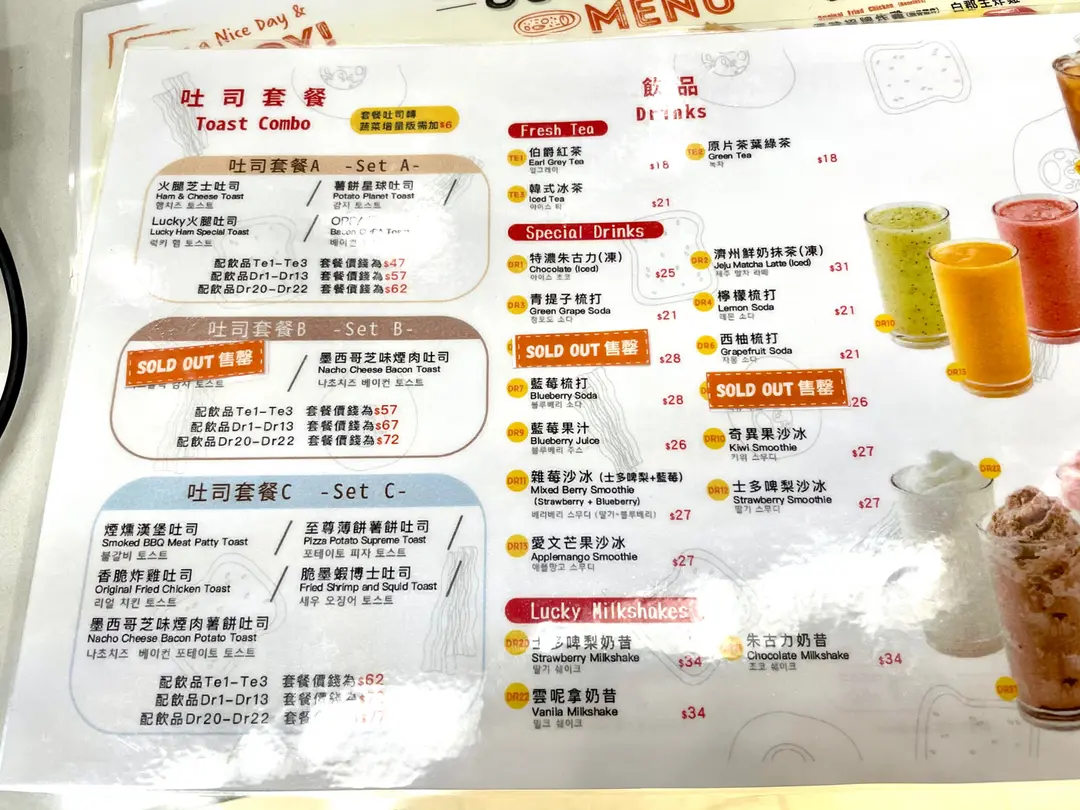 a Nice Day &
MENU
吐司套餐
Toast Combo
套餐吐司轉
蔬菜增量版需加$6
吐司套餐A -Set A-
火腿芝士吐司
Ham & Cheese Toast
햄치즈 토스트
薯餅星球吐司
Potato Planet Toast
감자 토스트
Lucky火腿吐司
Lucky Ham Special Toast
럭키 햄 토스트
Bacon
베이컨
配飲品Te1-Te3 套餐價錢為$47
配飲品Dr1-Dr13 套餐價錢為$57
配飲品Dr20-Dr22 套餐價錢為$62
吐司套餐B -Set B-
SOLD OUT 售罄
감자 토스트
墨西哥芝味煙肉吐司
Nacho Cheese Bacon Toast
나초치즈 베이컨 토스트
配飲品Te1-Te3 套餐價錢為$57
配飲品Dr1-Dr13 套餐價錢為$67
配飲品Dr20-Dr22 套餐價錢為$72
吐司套餐C -Set C-
煙燻漢堡吐司
Smoked BBQ Meat Patty Toast
불갈비 토스트
至尊薄餅薯餅吐司
Pizza Potato Supreme Toast
포테이토 피자 토스트
香脆炸雞吐司
Original Fried Chicken Toast
리얼 치킨 토스트
脆墨蝦博士吐司
Fried Shrimp and Squid Toast
새우 오징어 토스트
墨西哥芝味煙肉薯餅吐司
Nacho Cheese Bacon Potato Toast
나초치즈 베이컨 포테이토 토스트
配飲品Te1-Te3 套餐價錢為$62
配飲品Dr1-Dr13 套餐價錢
配飲品Dr20-Dr22 套餐
飲品
Drinks
Fresh Tea
TE1 伯爵紅茶
Earl Grey Tea
얼그레이
$18
TE2 原片茶葉綠茶
Green Tea
녹차
$18
TE3 韓式冰茶
Iced Tea
아이스 티
$21
Special Drinks
DR1 特濃朱古力(凍)
Chocolate (Iced)
아이스 초코
$25
DR2 濟州鮮奶抹茶(凍)
Jeju Matcha Latte (Iced)
제주 말차 라떼
$31
DR3 青提子梳打
Green Grape Soda
청포도 소다
$21
DR4 檸檬梳打
Lemon Soda
레몬 소다
$21
SOLD OUT 售罄
$28
DR6 西柚梳打
Grapefruit Soda
자몽 소다
$21
DR7 藍莓梳打
Blueberry Soda
블루베리 소다
$28
SOLD OUT 售罄
$26
DR9 藍莓果汁
Blueberry Juice
블루베리 주스
$26
DR10 奇異果沙冰
Kiwi Smoothie
키위 스무디
$27
DR11 雜莓沙冰 (士多啤梨+藍莓)
Mixed Berry Smoothie
(Strawberry + Blueberry)
베리베리 스무디 (딸기+블루베리) $27
DR12 士多啤梨沙冰
Strawberry Smoothie
딸기 스무디
$27
DR13 愛文芒果沙冰
Applemango Smoothie
애플망고 스무디
$27
Lucky Milkshakes
DR20 士多啤梨奶昔
Strawberry Milkshake
딸기 쉐이크
$34
朱古力奶昔
Chocolate Milkshake
초코 쉐이크
$34
DR22 雲呢拿奶昔
Vanila Milkshake
밀크 쉐이크
$34
DR10
DR13
DR22
DR21